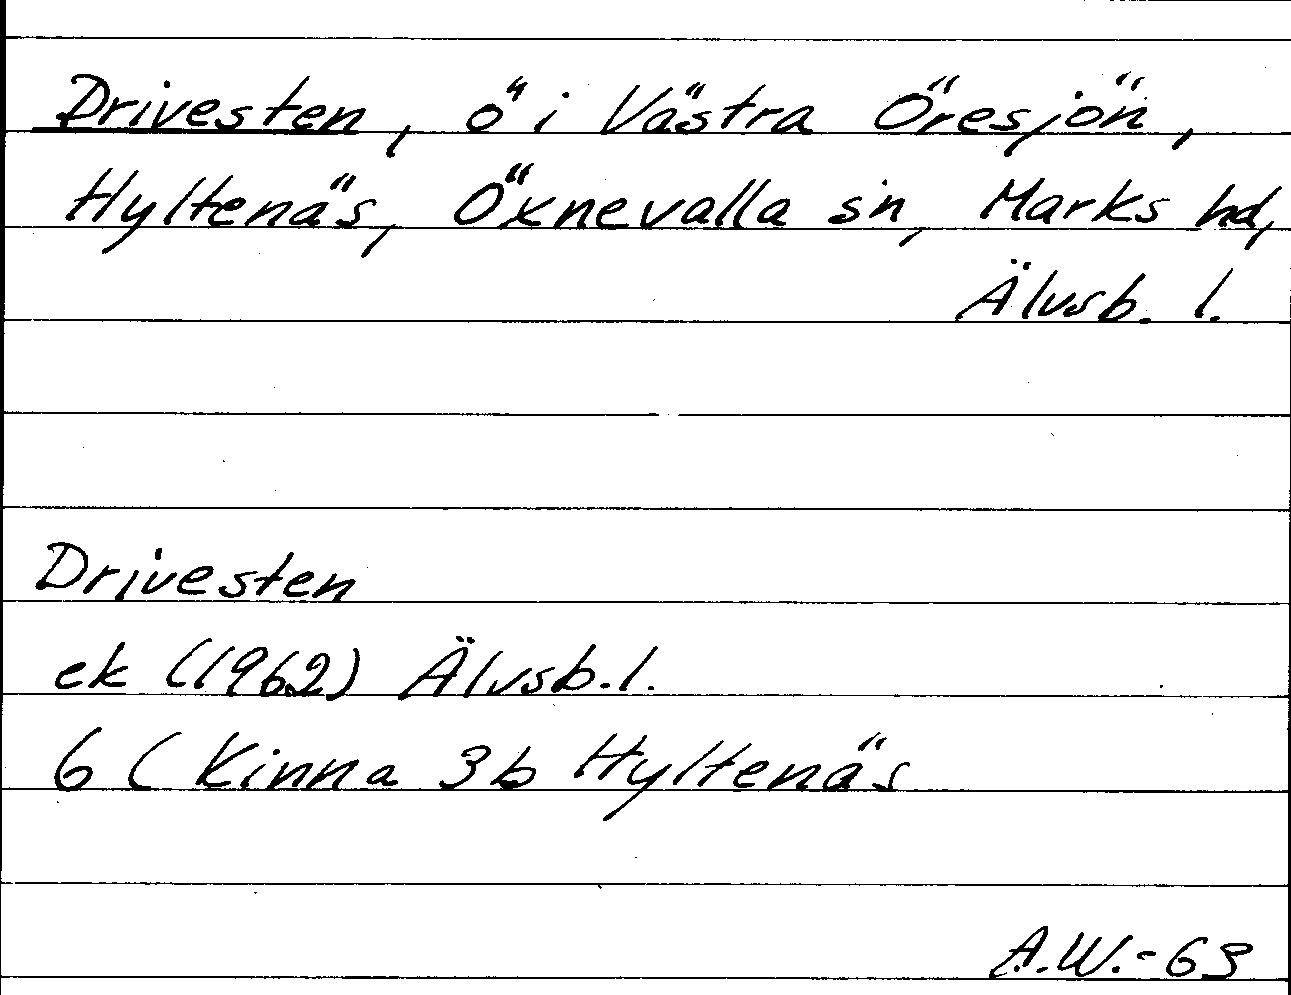 Drivesten, ö i Västra Öresjön,
Hyltenäs, Öxnevalla sn, Marks hd,
Älvsb. l.
Drivesten
ek (1962) Älvsb.l.
6 C Kinna 3b Hyltenäs
A.W.-63